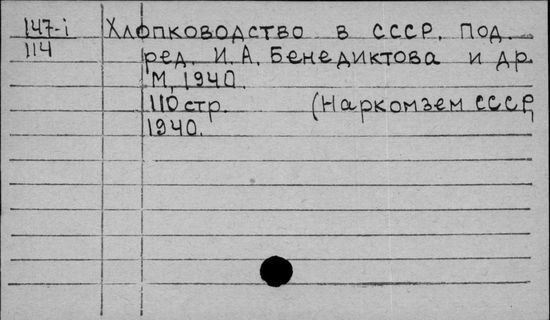 147-i Хлопководство в СССР. Под.
114 ред. И. А. Бенедиктова и др.
М, 1940.
110 стр. (Наркомзем СССР,
1940.